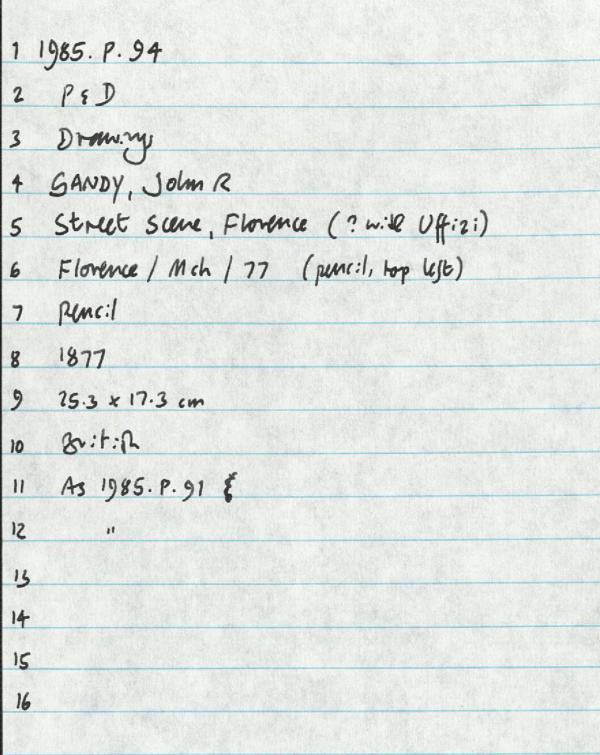 1 1985. P. 94
2 P & D
3 Drawings
4 SANDY, John R
5 Street Scene, Florence (? with Uffizi)
6 Florence / Mch / 77 (pencil, top left)
7 Pencil
8 1877
9 25.3 x 17.3 cm
10 British
11 As 1985. P. 91 &
12 "
13
14
15
16